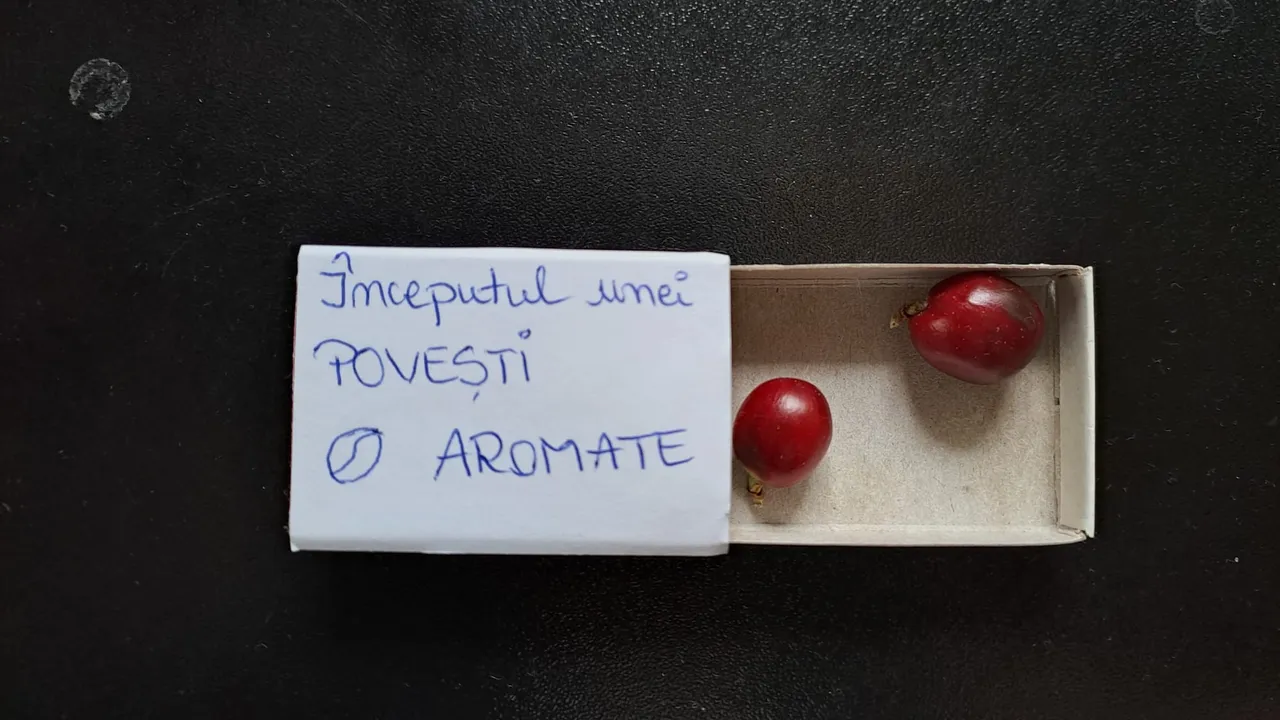 Începutul unei
POVEȘTI
AROMATE